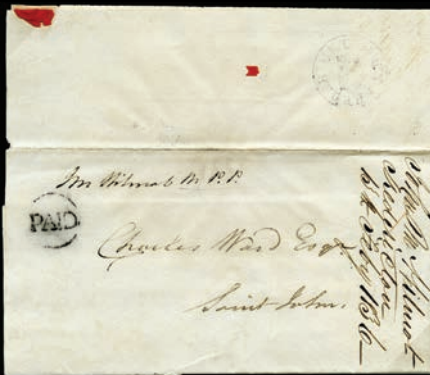 Mr Wilmot M.P.P.
PAID
Charles Ward Esqr
Saint John.
Wilmot
Fredericton
Feby 1836